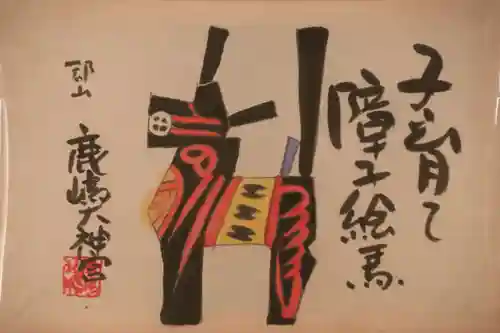 子育て
障子絵馬
郡山
鹿嶋大神宮